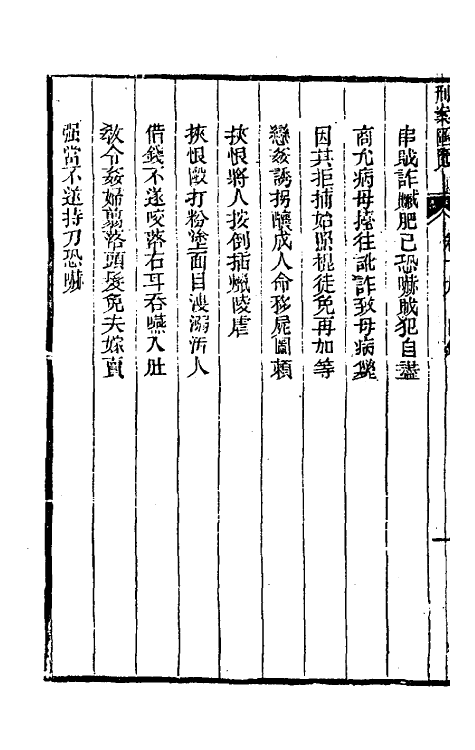 刑案匯覽
串賊詐贓肥己恐嚇賊犯自盡
商允病母擡往訛詐致母病斃
因其拒捕始照棍徒免再加等
戀姦誘拐釀成人命移屍圖賴
挾恨將人按倒插蠟陵虐
挾恨毆打粉塗面目溲溺汚人
借錢不遂咬落右耳吞嚥入肚
教令姦婦剪落頭髮免夫嫁賣
强當不遂持刀恐嚇